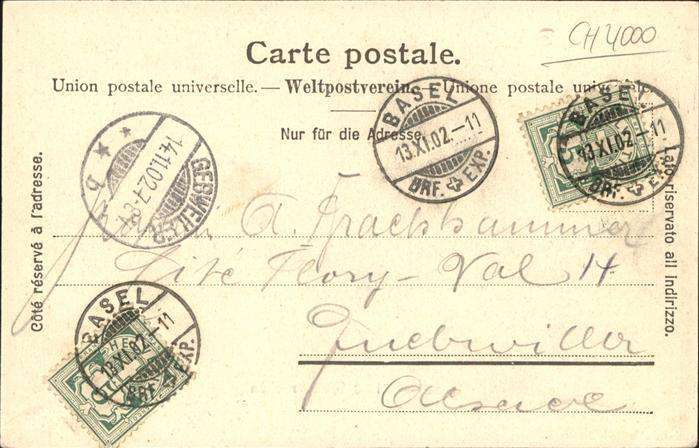 CH 4000
Carte postale.
Union postale universelle. — Weltpostverein. — Unione postale universale.
Nur für die Adresse.
Côté réservé à l'adresse.
Lato riservato all indirizzo.
BASEL
13.XI.02.–11
BRF. EXP.
BASEL
13.XI.02.–11
BRF. EXP.
GEBWEILER
14.11.02.7-8V
b
A. Drachhammer
Cité Flory-Val 14
Guebwiller
Alsace
BASEL
13.XI.02.–11
BRF. EXP.
HE
5